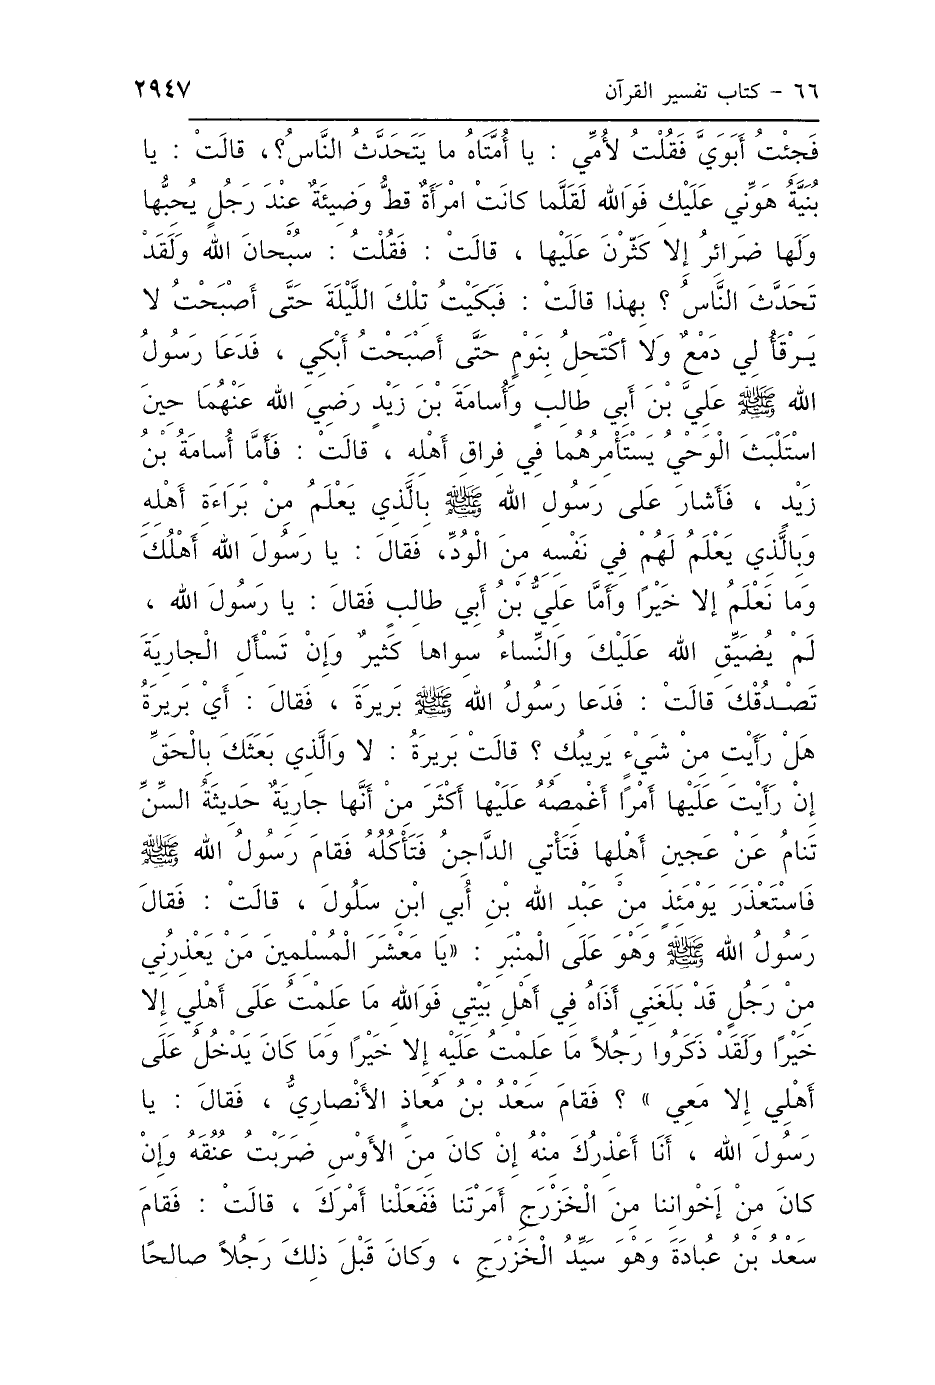 ٦٦ - كتاب تفسير القرآن ٢٩٤٧
فَجِئْتُ أَبَوَيَّ فَقُلْتُ لأُمِّي : يا أُمَّتَاهُ ما يَتَحَدَّثُ النَّاسُ؟، قالَتْ : يا
بُنَيَّةُ هَوِّني عَلَيْكِ فَوَالله لَقَلَّما كانَتْ امْرَأَةٌ قطُّ وَضِيئَةٌ عِنْدَ رَجُلٍ يُحِبُّها
وَلَها ضَرَائرُ إلا كَثَّرْنَ عَلَيْها ، قالَتْ : فَقُلْتُ : سُبْحانَ الله وَلَقَدْ
تَحَدَّثَ النَّاسُ ؟ بِهذا قالَتْ : فَبَكَيْتُ تِلْكَ اللَّيْلَةَ حَتَّى أَصْبَحْتُ لا
يَرْقَأُ لي دَمْعٌ وَلا أَكْتَحِلُ بِنَوْمٍ حَتَّى أَصْبَحْتُ أَبْكي ، فَدَعَا رَسُولُ
الله ﷺ عَلِيَّ بْنَ أَبي طالِبٍ وَأُسامَةَ بْنَ زَيْدٍ رَضِيَ الله عَنْهُما حِينَ
اسْتَلْبَثَ الْوَحْيُ يَسْتَأْمِرُهُما في فِراقِ أَهْلِهِ ، قالَتْ : فَأَمَّا أُسامَةُ بْنُ
زَيْدٍ ، فَأَشارَ عَلى رَسُولِ الله ﷺ بِالَّذي يَعْلَمُ مِنْ بَرَاءَةِ أَهْلِهِ
وَبِالَّذي يَعْلَمُ لَهُمْ في نَفْسِهِ مِنَ الْوُدِّ، فَقالَ : يا رَسُولَ الله أَهْلُكَ
وَما نَعْلَمُ إلا خَيْرًا وَأَمَّا عَلِيُّ بْنُ أَبي طالِبٍ فَقالَ : يا رَسُولَ الله ،
لَمْ يُضَيِّقِ الله عَلَيْكَ وَالنِّساءُ سِواها كَثيرٌ وَإنْ تَسْأَلِ الْجارِيَةَ
تَصْدُقْكَ قالَتْ : فَدَعا رَسُولُ الله ﷺ بَرِيرَةَ ، فَقالَ : أَيْ بَرِيرَةُ
هَلْ رَأَيْتِ مِنْ شَيْءٍ يَرِيبُكِ ؟ قالَتْ بَرِيرَةُ : لا وَالَّذي بَعَثَكَ بِالْحَقِّ
إنْ رَأَيْتَ عَلَيْها أَمْرًا أَغْمِصُهُ عَلَيْها أَكْثَرَ مِنْ أَنَّها جارِيَةٌ حَدِيثَةُ السِّنِّ
تَنامُ عَنْ عَجينِ أَهْلِها فَتَأْتي الدَّاجِنُ فَتَأْكُلُهُ فَقامَ رَسُولُ الله ﷺ
فَاسْتَعْذَرَ يَوْمَئِذٍ مِنْ عَبْدِ الله بنِ أُبي ابْنِ سَلُولَ ، قالَتْ : فَقالَ
رَسُولُ الله ﷺ وَهْوَ عَلَى الْمِنْبَرِ : «يَا مَعْشَرَ الْمُسْلِمينَ مَنْ يَعْذِرُني
مِنْ رَجُلٍ قَدْ بَلَغَني أَذَاهُ في أَهْلِ بَيْتي فَوَالله مَا عَلِمْتُ عَلَى أَهْلي إلا
خَيْرًا وَلَقَدْ ذَكَرُوا رَجُلاً ما عَلِمْتُ عَلَيْهِ إلا خَيْرًا وَمَا كَانَ يَدْخُلُ عَلَى
أَهْلِي إلا مَعَي » ؟ فَقامَ سَعْدُ بنُ مُعاذٍ الأَنْصارِيُّ ، فَقالَ : يا
رَسُولَ الله ، أَنَا أَعْذِرُكَ مِنْهُ إنْ كانَ مِنَ الأَوْسِ ضَرَبْتُ عُنُقَهُ وَإنْ
كانَ مِنْ إخْوانِنا مِنَ الْخَزْرَجِ أَمَرْتَنا فَفَعَلْنا أَمْرَكَ ، قالَتْ : فَقامَ
سَعْدُ بْنُ عُبادَةَ وَهْوَ سَيِّدُ الْخَزْرَجِ ، وَكَانَ قَبْلَ ذلِكَ رَجُلاً صالحًا